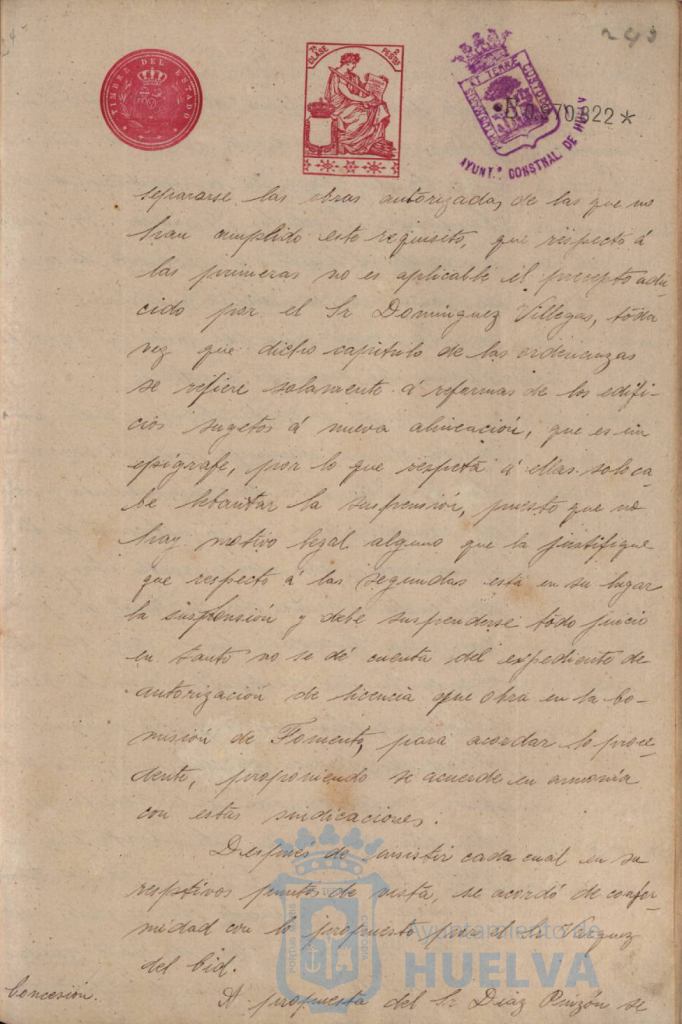 243
TIMBRE DEL ESTADO
7ª CLASE 2 PESETAS
PORTUS MARIS ET TERRE CUSTODIA
AYUNT.º CONSTNAL DE HUELV
0.970.822*
separarse las obras autorizadas de las que no
han cumplido este requisito, que respecto á
las primeras no es aplicable el precepto adu-
cido por el Sr Dominguez Villegas, toda
vez que dicho capitulo de las ordenanzas
se refiere solamente á reformas de los edifi-
cios sugetos á nueva alineación, que es su
epígrafe, por lo que respecta á ellas solo ca-
be lebantar la suspensión, puesto que no
hay motivo legal alguno que la justifique
que respecto á las segundas está en su lugar
la suspensión y debe suspenderse todo juicio
en tanto no se dé cuenta del expediente de
autorización de licencia que obra en la Co-
misión de Fomento, para acordar lo proce-
dente, proponiendo se acuerde en armonía
con estas indicaciones.
Después de insistir cada cual en su
respetivos puntos de vista, se acordó de confor-
midad con lo propuesto por el Sr Vazquez
del Cid.
Concesión.
A propuesta del Sr Diaz Pinzón se
Ayuntamiento de
HUELVA